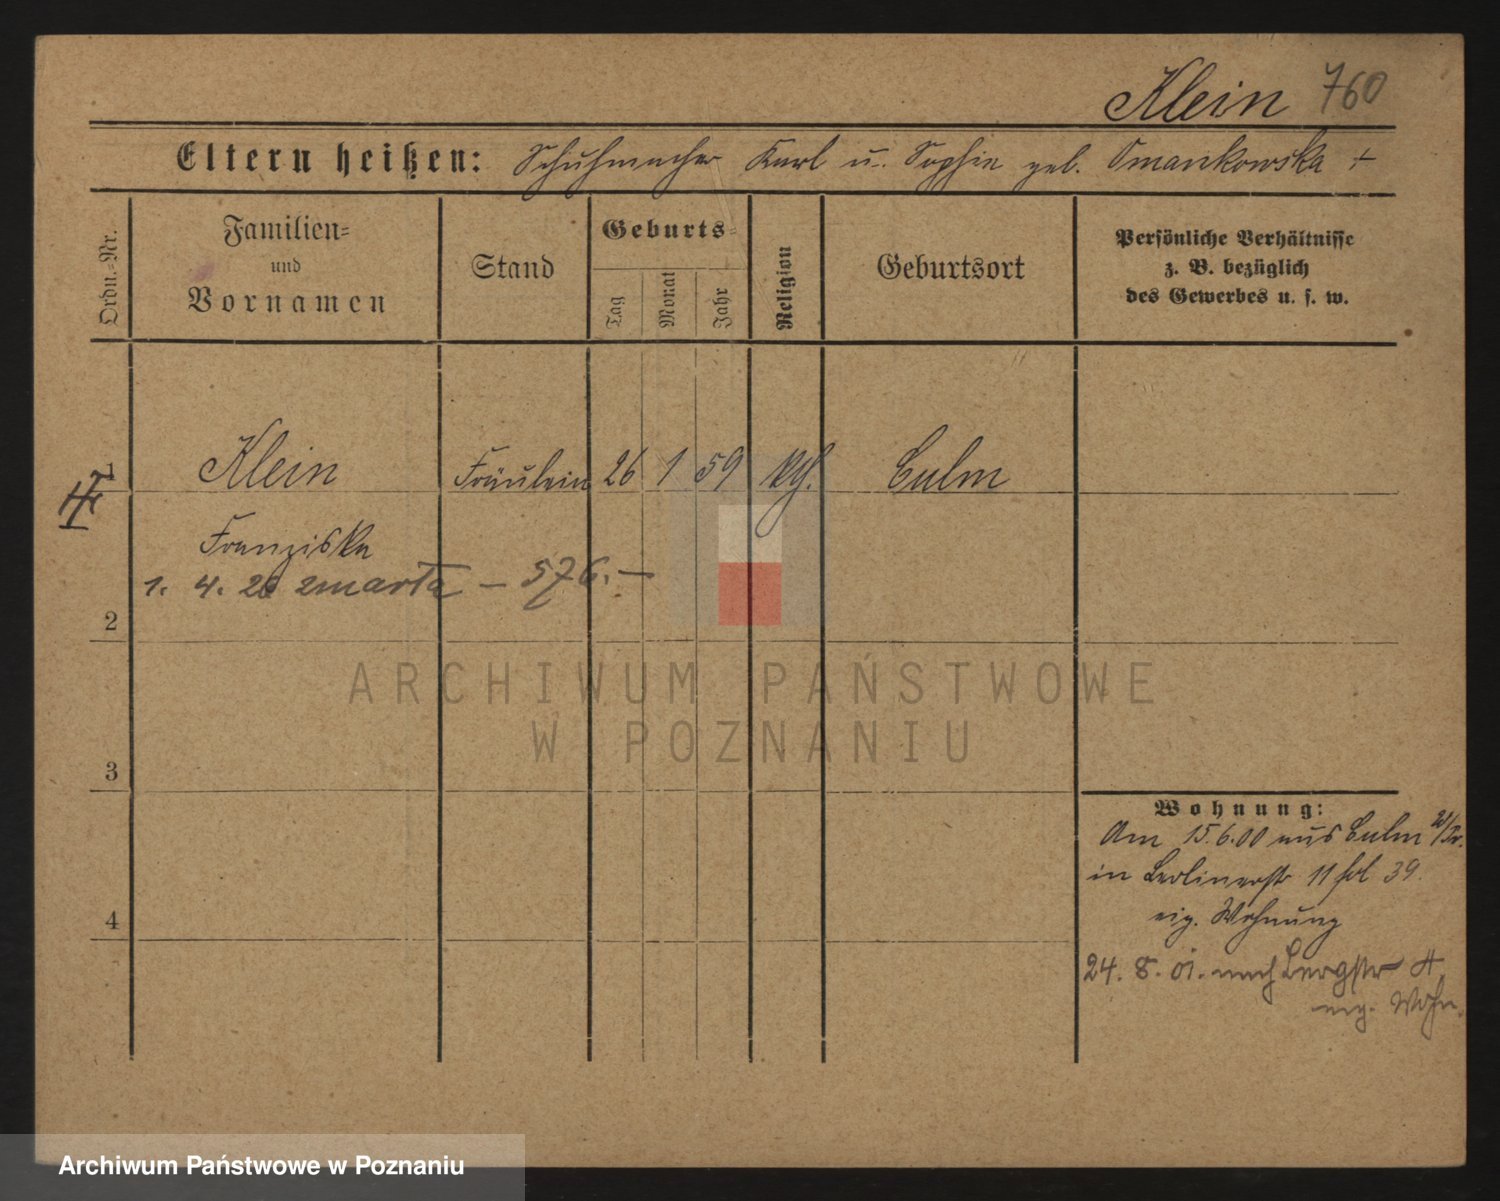 Klein 760
Eltern heißen: Schuhmacher Karl u. Sophie geb. Omankowska +
Ordn.-Nr.
Familien-
und
Vornamen
Stand
Geburts-
Tag
Monat
Jahr
Religion
Geburtsort
Persönliche Verhältnisse
z. B. bezüglich
des Gewerbes u. s. w.
1
Klein Fräulein 26 1 59 kth. Culm
Franziska
1. 4. 26 zmarła – 576. –
2
3
4
Wohnung:
Am 15.6.00 aus Culm W/Pr.
in Berlinerstr 11 fol 39.
eig. Wohnung
24. 8. 01. nach Bergstr 4
eig. Wohn.
ARCHIWUM PAŃSTWOWE
W POZNANIU
Archiwum Państwowe w Poznaniu